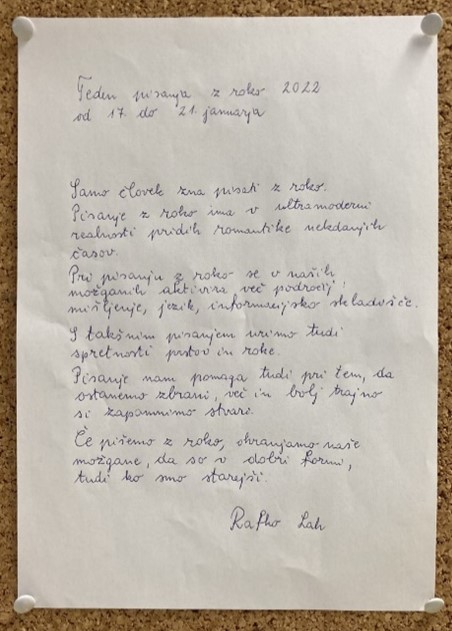 Teden pisanja z roko 2022
od 17. do 21. januarja
Samo človek zna pisati z roko.
Pisanje z roko ima v ultramoderni
realnosti pridih romantike nekdanjih
časov.
Pri pisanju z roko se v naših
možganih aktivira več področij:
mišljenje, jezik, informacijsko skladišče.
S takšnim pisanjem urimo tudi
spretnosti prstov in roke.
Pisanje nam pomaga tudi pri tem, da
ostanemo zbrani, več in bolj trajno
si zapomnimo stvari.
Če pišemo z roko, ohranjamo naše
možgane, da so v dobri formi,
tudi ko smo starejši.
Rafko Lah